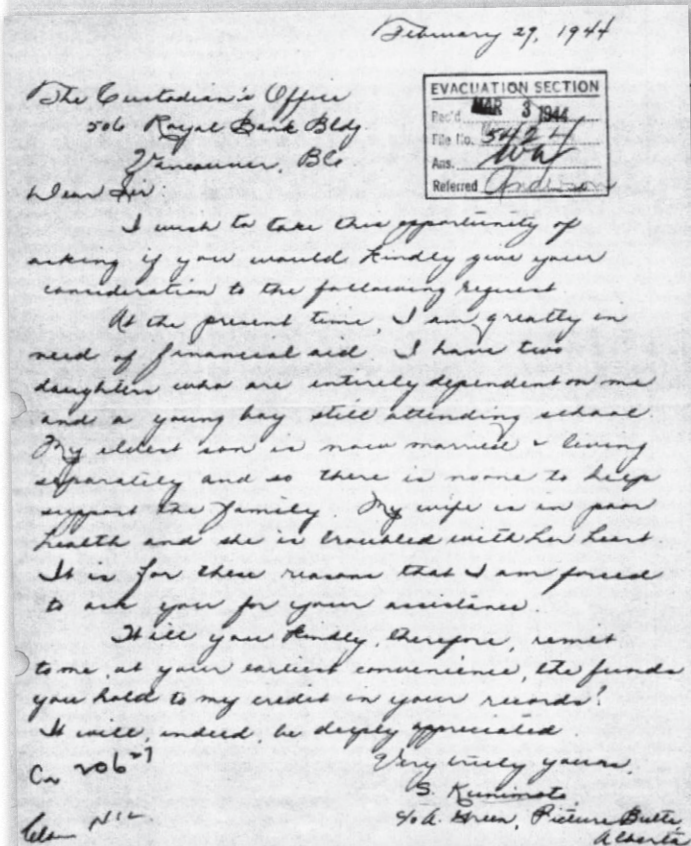 February 29, 1944
The Custodian's Office
506 Royal Bank Bldg
Vancouver, B.C.
EVACUATION SECTION
Rec'd MAR 3 1944
File No. 5424
Ans.
Referred Anderson
Dear Sir:
I wish to take this opportunity of
asking if you would kindly give your
consideration to the following request
At the present time, I am greatly in
need of financial aid. I have two
daughters who are entirely dependent on me
and a young boy still attending school.
My eldest son is now married & living
separately and so there is none to help
support the family. My wife is in poor
health and she is troubled with her heart.
It is for these reasons that I am forced
to ask you for your assistance.
Will you kindly, therefore, remit
to me, at your earliest convenience, the funds
you hold to my credit in your records?
It will, indeed, be deeply appreciated.
Very truly yours,
S. Kunimoto
c/o A. Green, Picture Butte,
Alberta
206-7
Nil